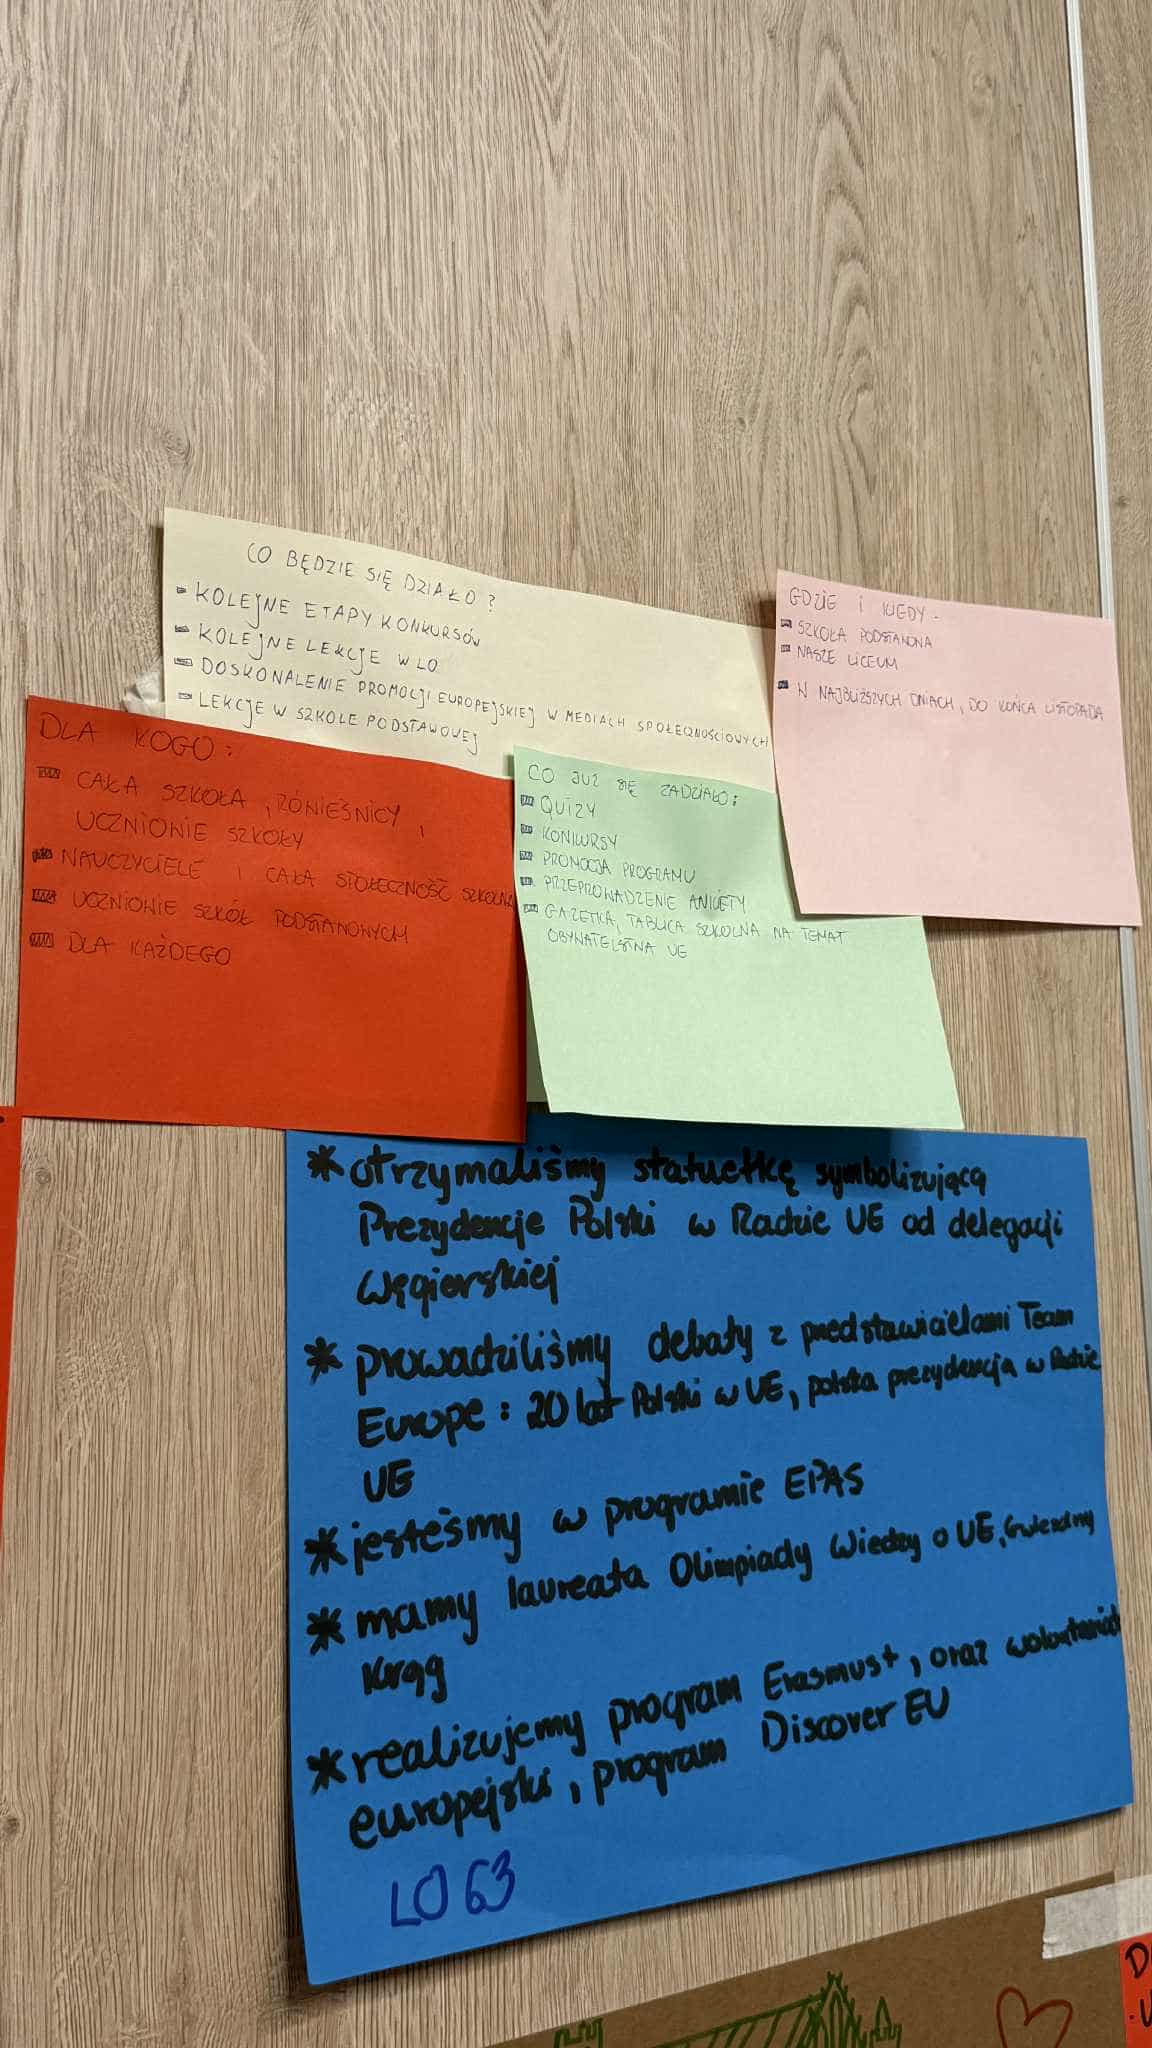 CO BĘDZIE SIĘ DZIAŁO?
- KOLEJNE ETAPY KONKURSÓW
- KOLEJNE LEKCJE W LO
- DOSKONALENIE PROMOCJI EUROPEJSKIEJ W MEDIACH SPOŁECZNOŚCIOWYCH
- LEKCJE W SZKOLE PODSTAWOWEJ
GDZIE I KIEDY.
- SZKOŁA PODSTAWOWA
- NASZE LICEUM
- W NAJBLIŻSZYCH DNIACH, DO KOŃCA LISTOPADA
DLA KOGO:
- CAŁA SZKOŁA, RÓWIEŚNICY,
UCZNIOWIE SZKOŁY
- NAUCZYCIELE I CAŁA SPOŁECZNOŚĆ SZKOLNA
- UCZNIOWIE SZKÓŁ PODSTAWOWYCH
- DLA KAŻDEGO
CO JUŻ SIĘ ZADZIAŁO:
- QUIZY
- KONKURSY
- PROMOCJA PROGRAMU
- PRZEPROWADZENIE ANKIETY
- GAZETKA, TABLICA SZKOLNA NA TEMAT
OBYWATELSTWA UE
* otrzymaliśmy statuetkę symbolizującą
Prezydencję Polski w Radzie UE od delegacji
węgierskiej
* prowadziliśmy debaty z przedstawicielami Team
Europe: 20 lat Polski w UE, polska prezydencja w Radzie
UE
* jesteśmy w programie EPAS
* mamy laureata Olimpiady Wiedzy o UE, Gwiezdny
Krąg
* realizujemy program Erasmus+, oraz wolontariat
europejski, program Discover EU
LO 63